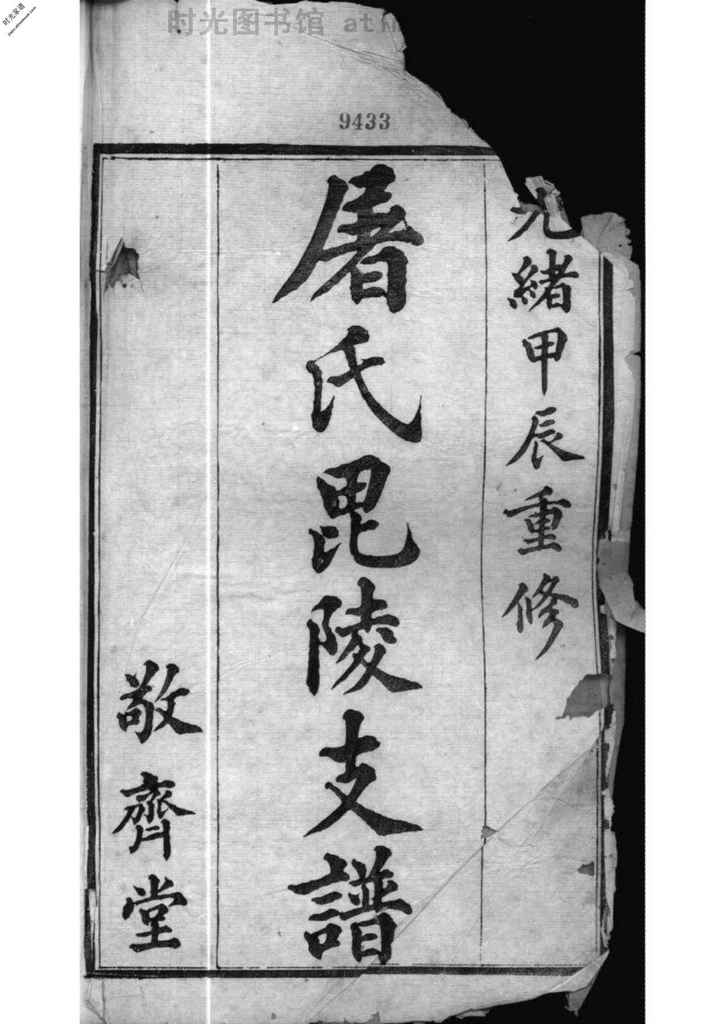 时光图书馆
9433
光緒甲辰重修
屠氏毘陵支譜
敬齊堂